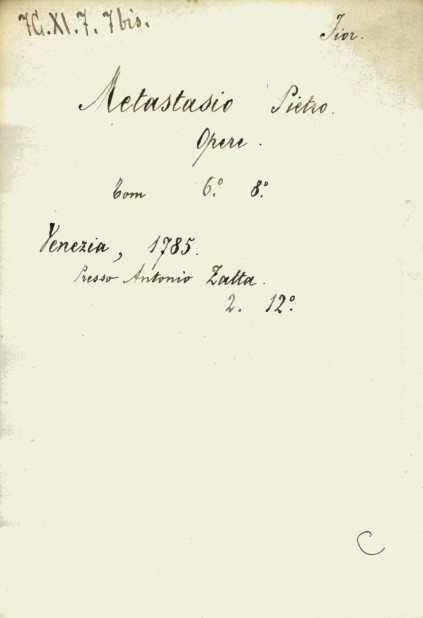 7G.XI.7.7bis.
Fior.
Metastasio Pietro.
Opere.
Tom 6.° 8.°
Venezia, 1785.
Presso Antonio Zatta.
2. 12.°
C